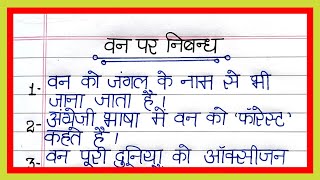 वन पर निबन्ध
1- वन को जंगल के नाम से भी
जाना जाता है ।
2- अंग्रेजी भाषा में वन को 'फॉरेस्ट'
कहते हैं ।
3- वन पूरी दुनिया को ऑक्सीजन